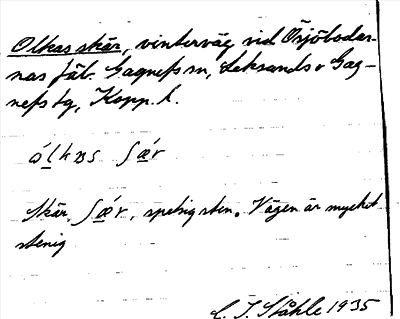 Olkas skär, vinterväg vid Österbodar-
nas fäb. Gagnefs sn, Leksands o Gag-
nefs tg, Kopp. l.
ó l k a s ʃ ǽ r
Skär, ʃǽr, spetsig sten. Vägen är mycket
stenig
C. I. Ståhle 1935